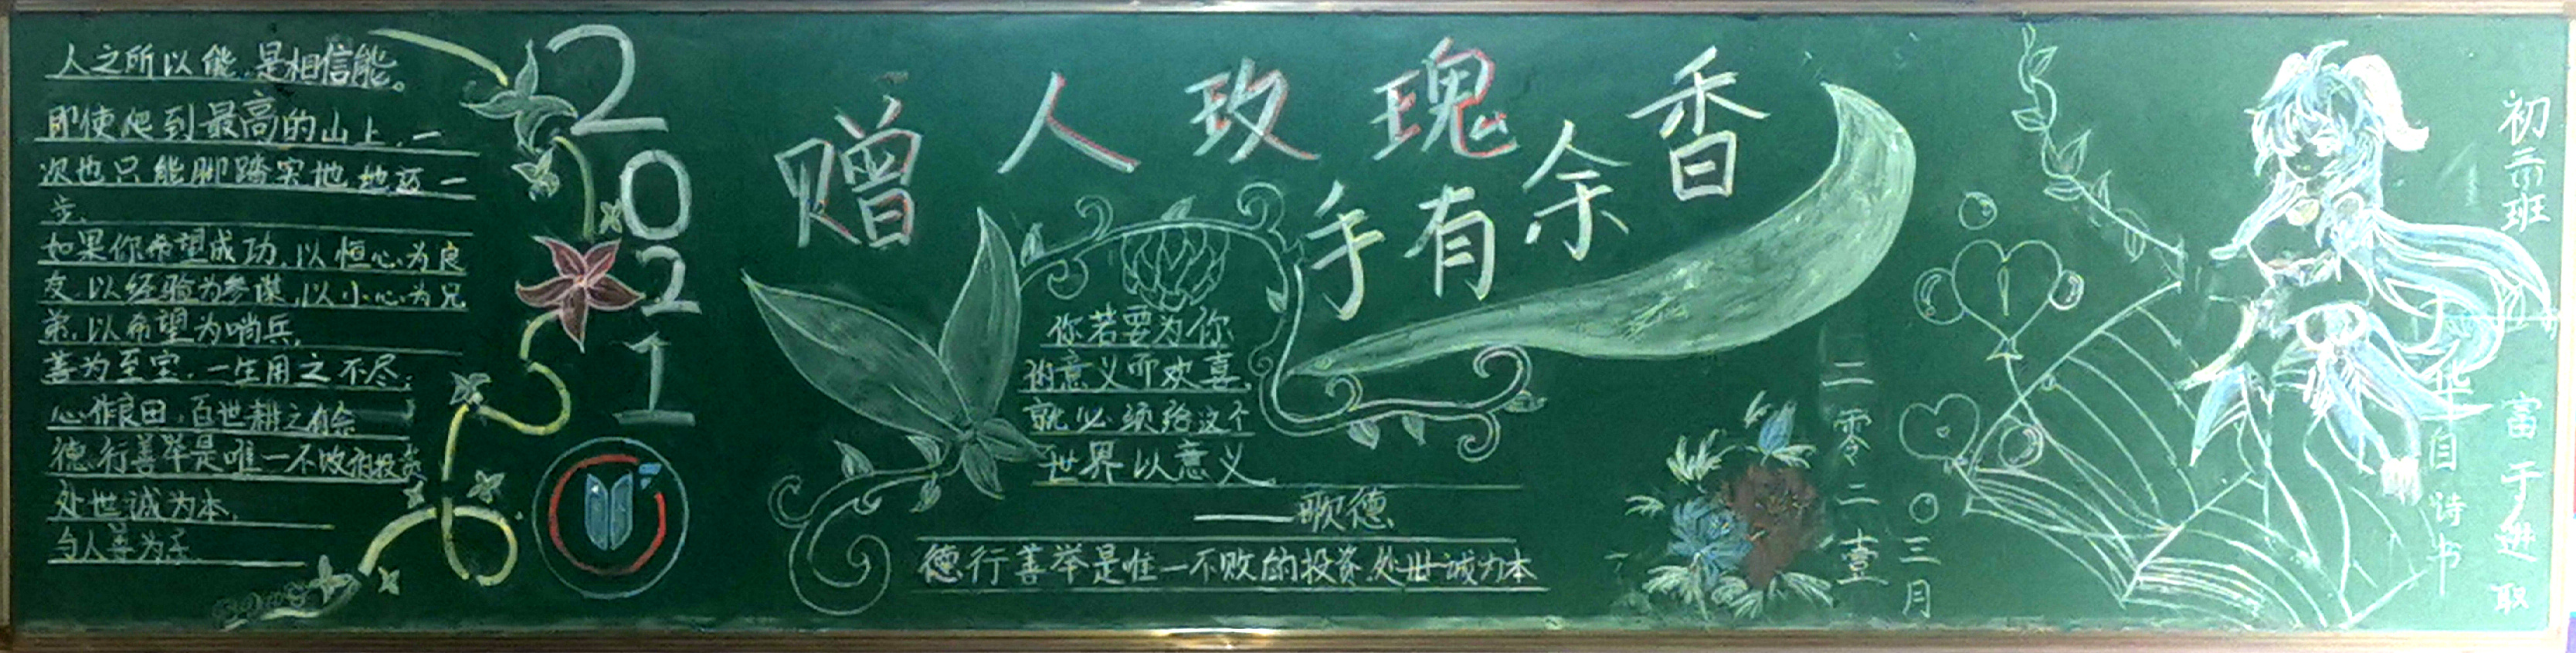 人之所以能,是相信能。
即使爬到最高的山上,一
次也只能脚踏实地地迈一
步。
如果你希望成功,以恒心为良
友,以经验为参谋,以小心为兄
弟,以希望为哨兵。
善为至宝,一生用之不尽;
心作良田,百世耕之有余
德行善举是唯一不败的投资
处世诚为本,
与人善为
2021
赠人玫瑰
手有余香
你若要为你
的意义而欢喜,
就必须给这个
世界以意义
——歌德
德行善举是唯一不败的投资,处世诚为本
二零二壹
〇三月
初 班
华自诗书
富于 取